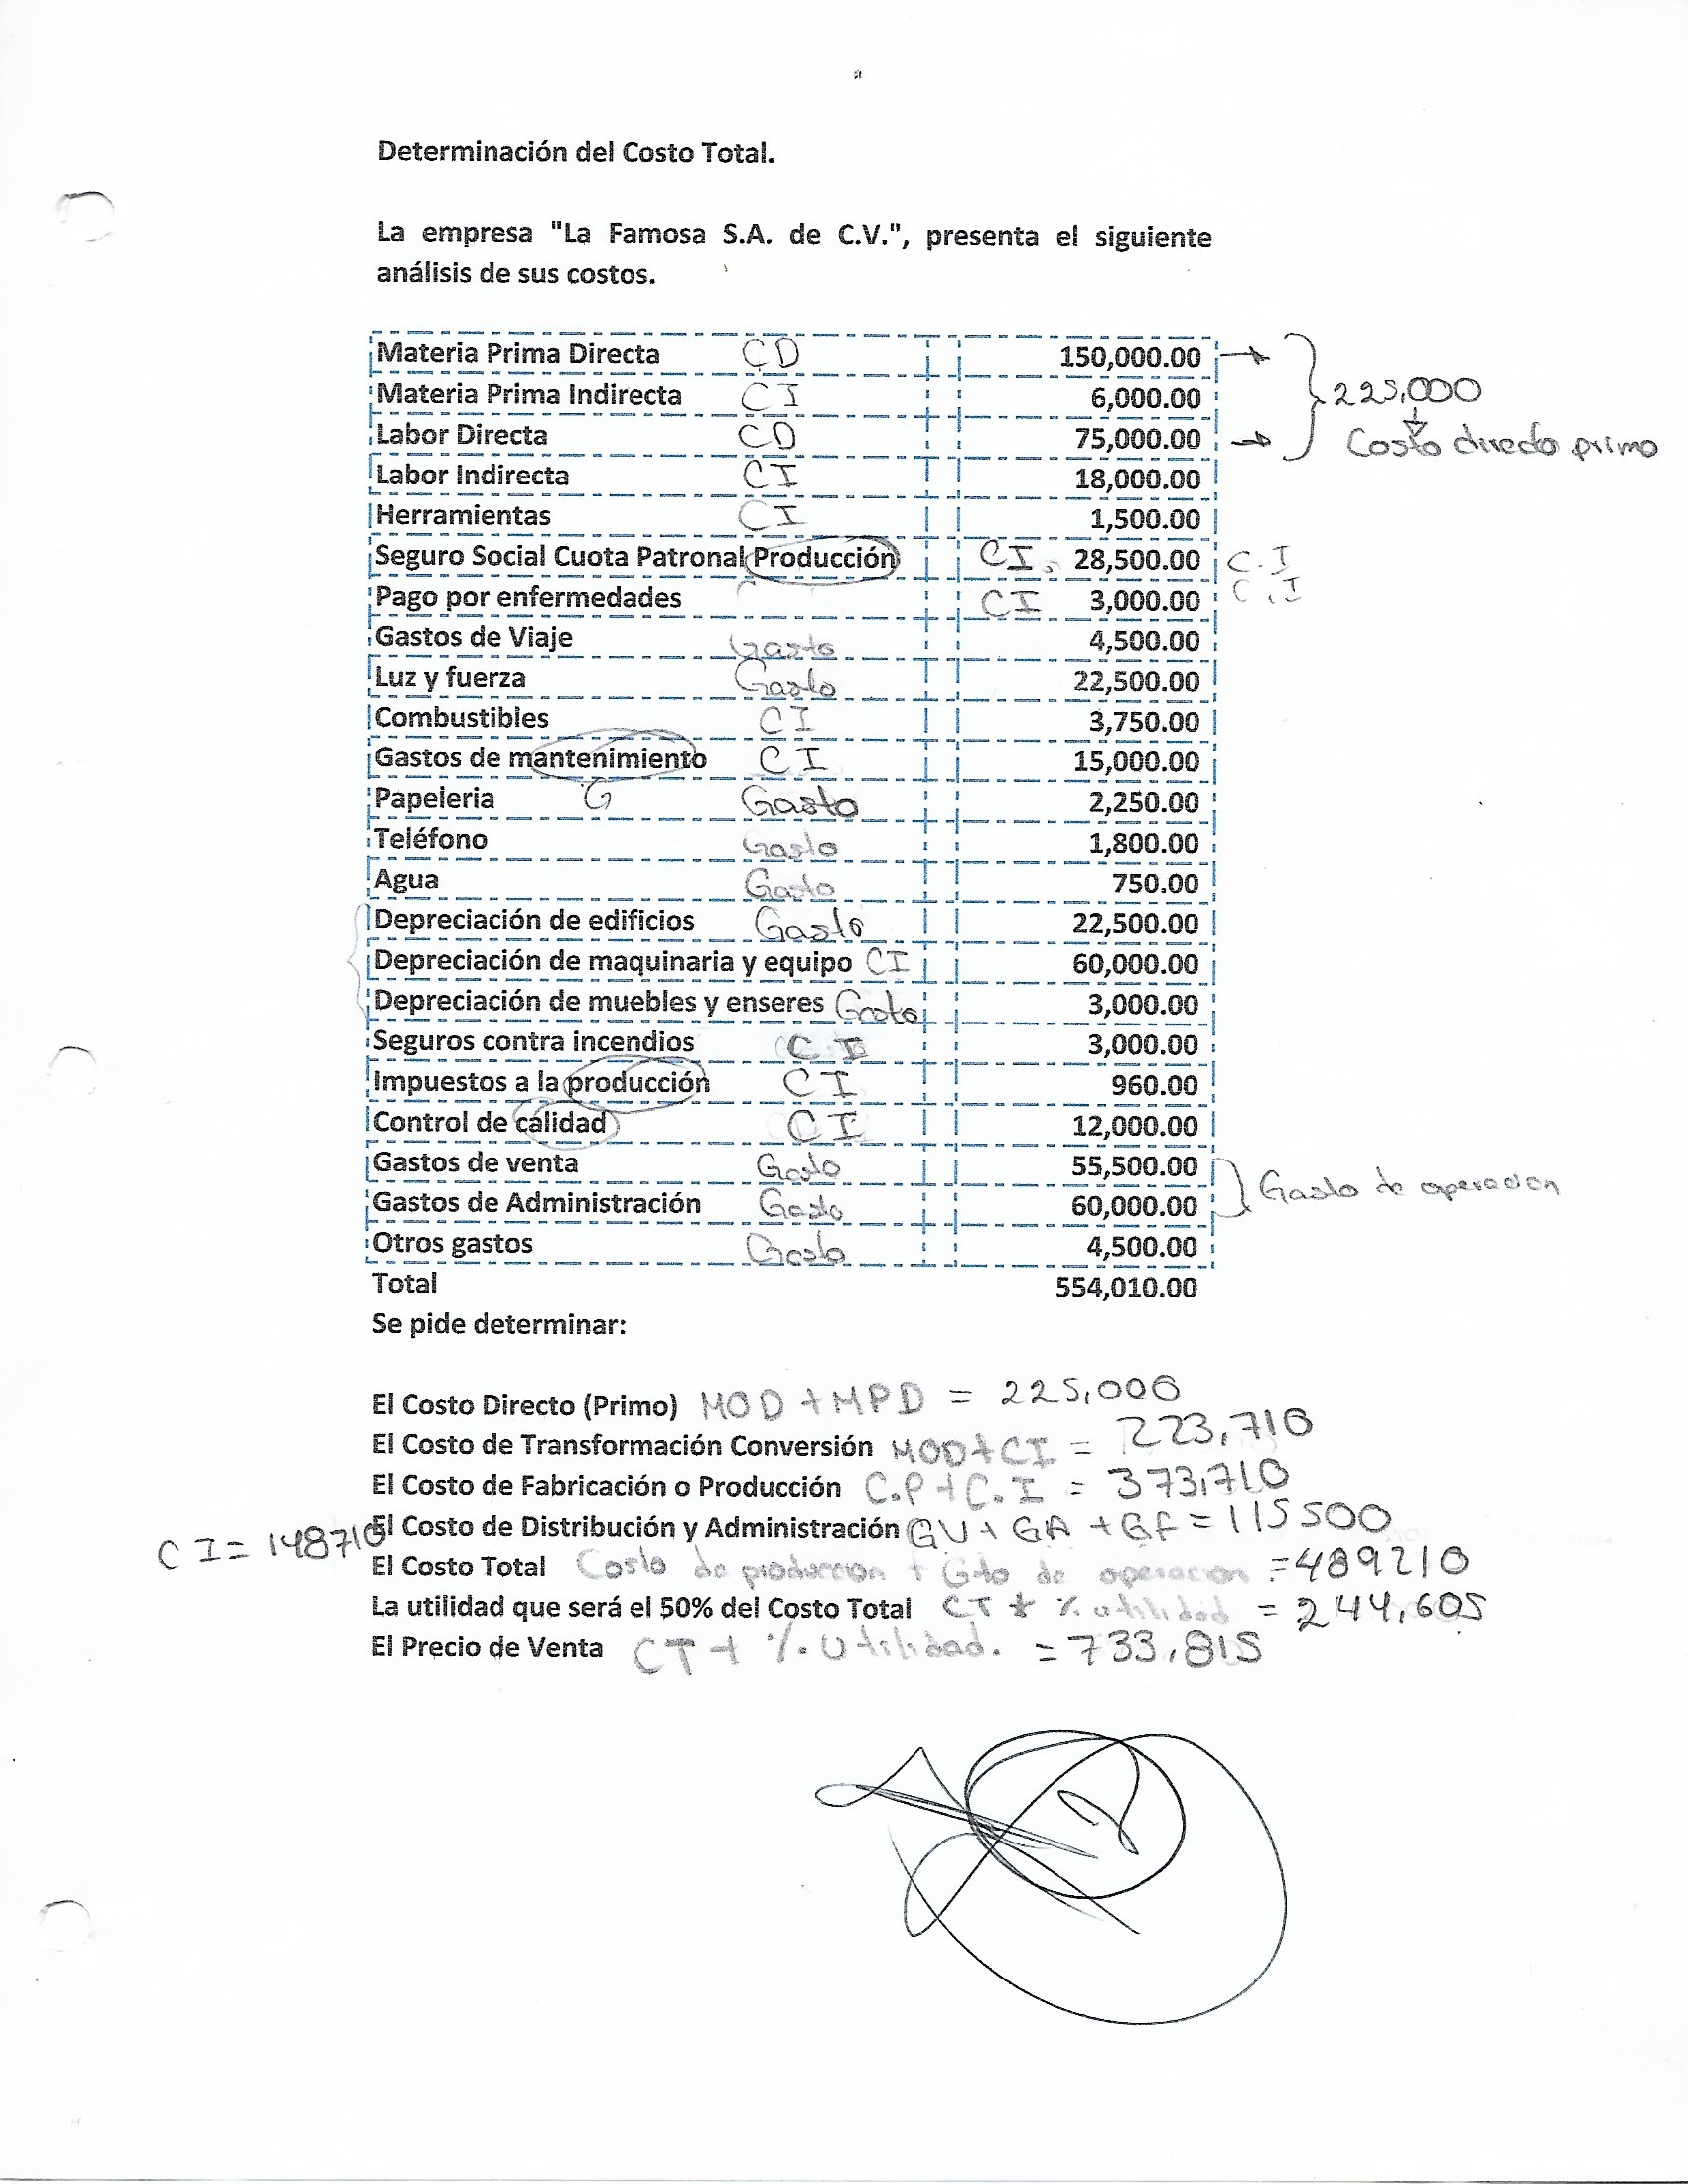 Determinación del Costo Total.
La empresa "La Famosa S.A. de C.V.", presenta el siguiente
análisis de sus costos.
Materia Prima Directa CD 150,000.00
Materia Prima Indirecta CI 6,000.00 225,000
Labor Directa CD 75,000.00 Costo directo primo
Labor Indirecta CI 18,000.00
Herramientas CI 1,500.00
Seguro Social Cuota Patronal Producción CI. 28,500.00 C.I
Pago por enfermedades CI 3,000.00 C.I
Gastos de Viaje Gasto 4,500.00
Luz y fuerza Gasto 22,500.00
Combustibles CI 3,750.00
Gastos de mantenimiento CI 15,000.00
Papeleria G Gasto 2,250.00
Teléfono Gasto 1,800.00
Agua Gasto 750.00
Depreciación de edificios Gasto 22,500.00
Depreciación de maquinaria y equipo CI 60,000.00
Depreciación de muebles y enseres Gasto 3,000.00
Seguros contra incendios CI 3,000.00
Impuestos a la producción CI 960.00
Control de calidad CI 12,000.00
Gastos de venta Gasto 55,500.00
Gastos de Administración Gasto 60,000.00 Gasto de operacion
Otros gastos Gasto 4,500.00
Total 554,010.00
Se pide determinar:
El Costo Directo (Primo) MOD + MPD = 225,000
El Costo de Transformación Conversión MOD+CI = 223,710
El Costo de Fabricación o Producción C.P + C.I = 373,710
El Costo de Distribución y Administración GV + GA + GF = 115500
CI = 148710
El Costo Total Costo de produccion + Gto de operacion = 489210
La utilidad que será el 50% del Costo Total CT * % utilidad = 244,605
El Precio de Venta CT + % Utilidad. = 733,815